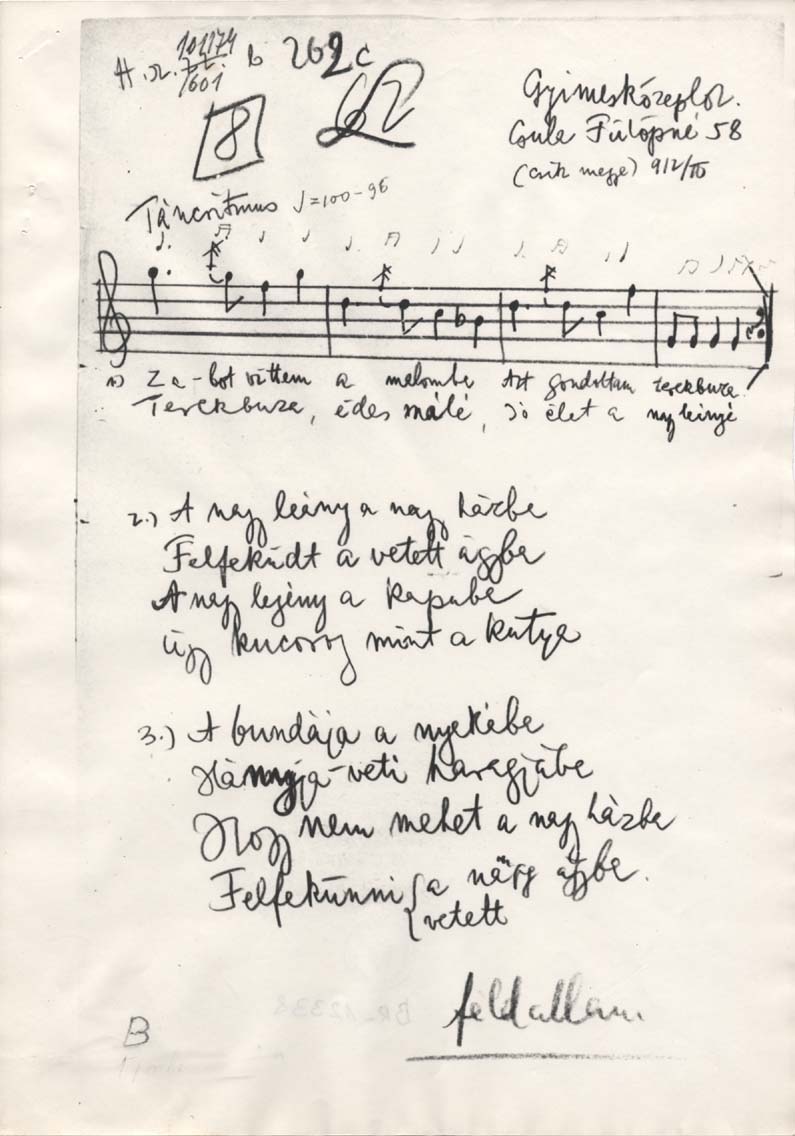 101174
H. sz. B 262 c
/601
8
62
Gyimesközéplok.
Csula Fülöpné 58
(Csik megye) 912/IV
Táncritmus ♩=100-96
1) Za-bot vittem a malombe Azt gondoltam terekbuza
Terekbuza, édes málé, Jó élet a nagy leányé
2.) A nagy leány a nagy házbe
Felfeküdt a vetett ágybe
A nagy legény a kapube
úgy kucorog mint a kutya
3.) A bundája a nyekébe
Hánnyja-veti haragjábe
Hogy nem mehet a nagy házbe
Felfekünni a nagy ágybe.
vetett
féldallam
B